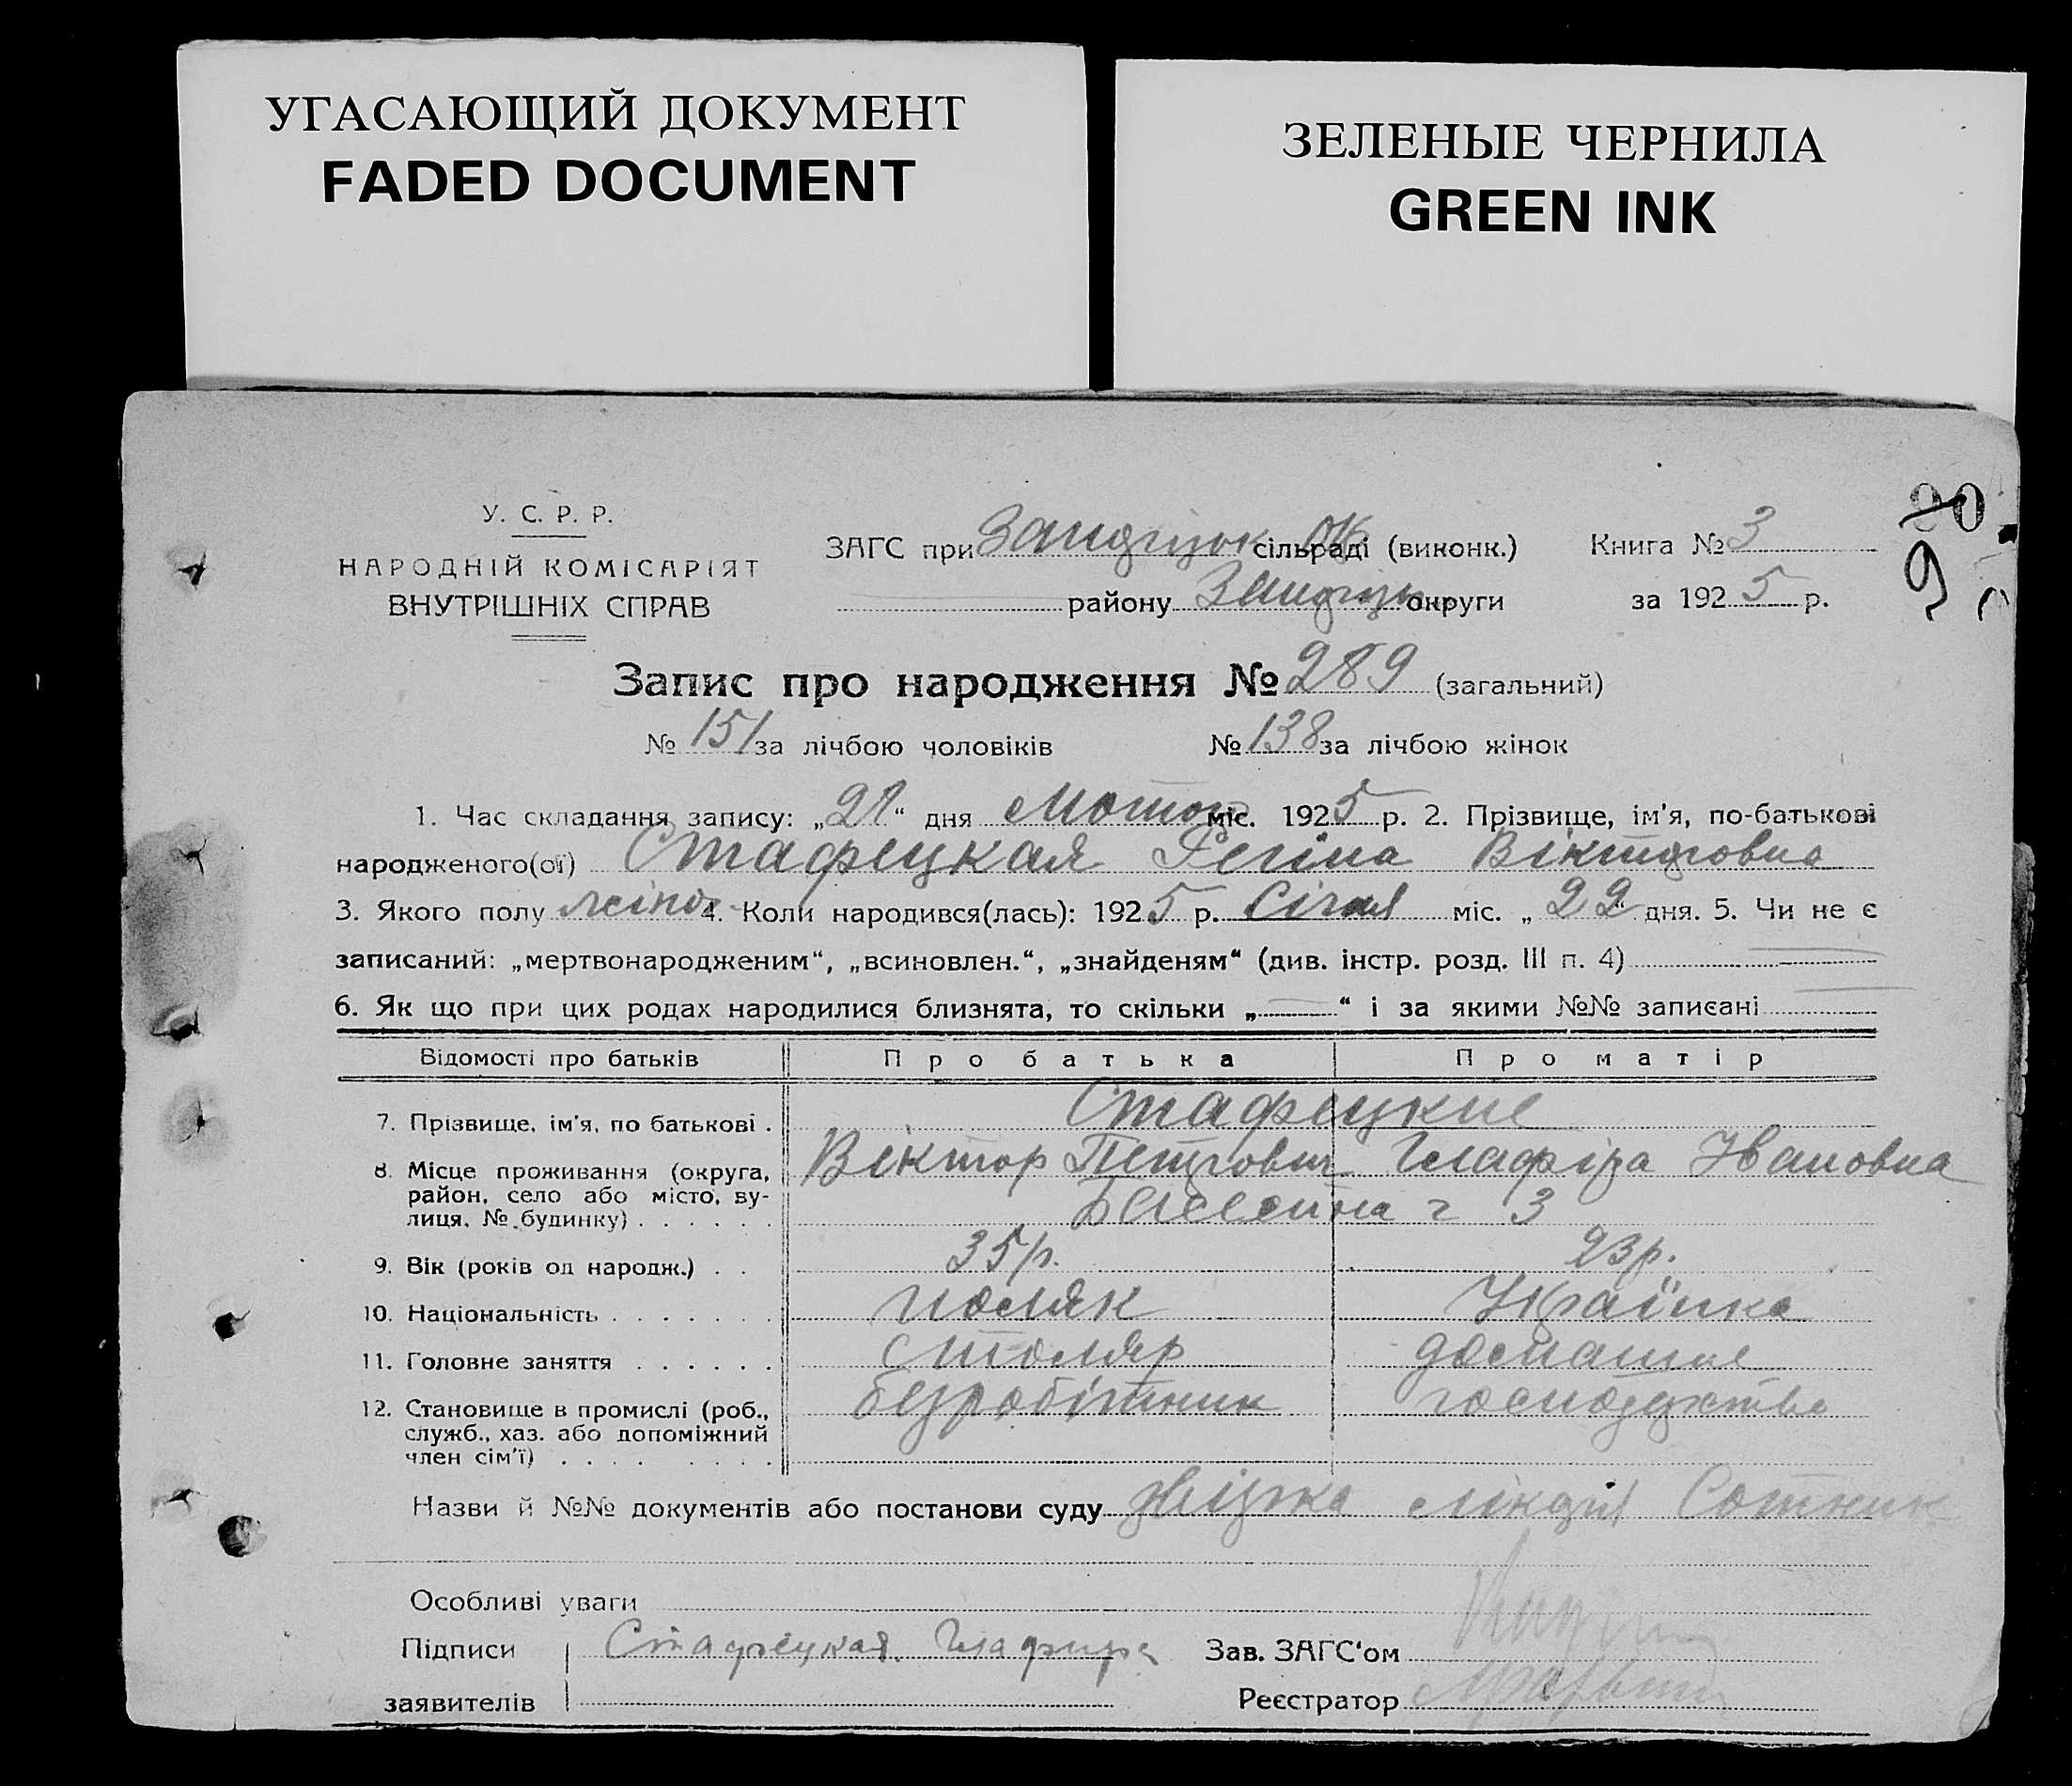 УГАСАЮЩИЙ ДОКУМЕНТ
FADED DOCUMENT
ЗЕЛЕНЫЕ ЧЕРНИЛА
GREEN INK
90
9
У. С. Р. Р.
НАРОДНІЙ КОМІСАРІЯТ
ВНУТРІШНІХ СПРАВ
ЗАГС при сільраді (виконк.) Книга № 3
району округи за 1925 р.
Запис про народження № 289 (загальний)
№ 151 за лічбою чоловіків № 138 за лічбою жінок
1. Час складання запису: „21“ дня міс. 1925 р. 2. Прізвище, ім'я, по-батькові
народженого(ої) Стафецкая Регіна Вікторовна
3. Якого полу жіноч. 4. Коли народився(лась): 1925 р. Січня міс. „22“ дня. 5. Чи не є
записаний: „мертвонародженим“, „всиновлен.“, „знайденям“ (див. інстр. розд. III п. 4)
6. Як що при цих родах народилися близнята, то скільки „ “ і за якими №№ записані
Відомості про батьків Про батька Про матір
7. Прізвище, ім'я, по батькові . Стафецкие
Віктор Петрович Глафіра Ивановна
8. Місце проживання (округа,
район, село або місто, ву-
лиця, № будинку) . . . . . . 3
9. Вік (років од народж.) . . 35 р. 23 р.
10. Національність . . . . . . . поляк Українка
11. Головне заняття . . . . . . столяр домашне
12. Становище в промислі (роб., безробітник господарство
служб., хаз. або допоміжний
член сім'ї) . . . . . . . .
Назви й №№ документів або постанови суду Сотник
Особливі уваги
Підписи Стафецкая Глафира Зав. ЗАГС'ом
заявителів Реєстратор